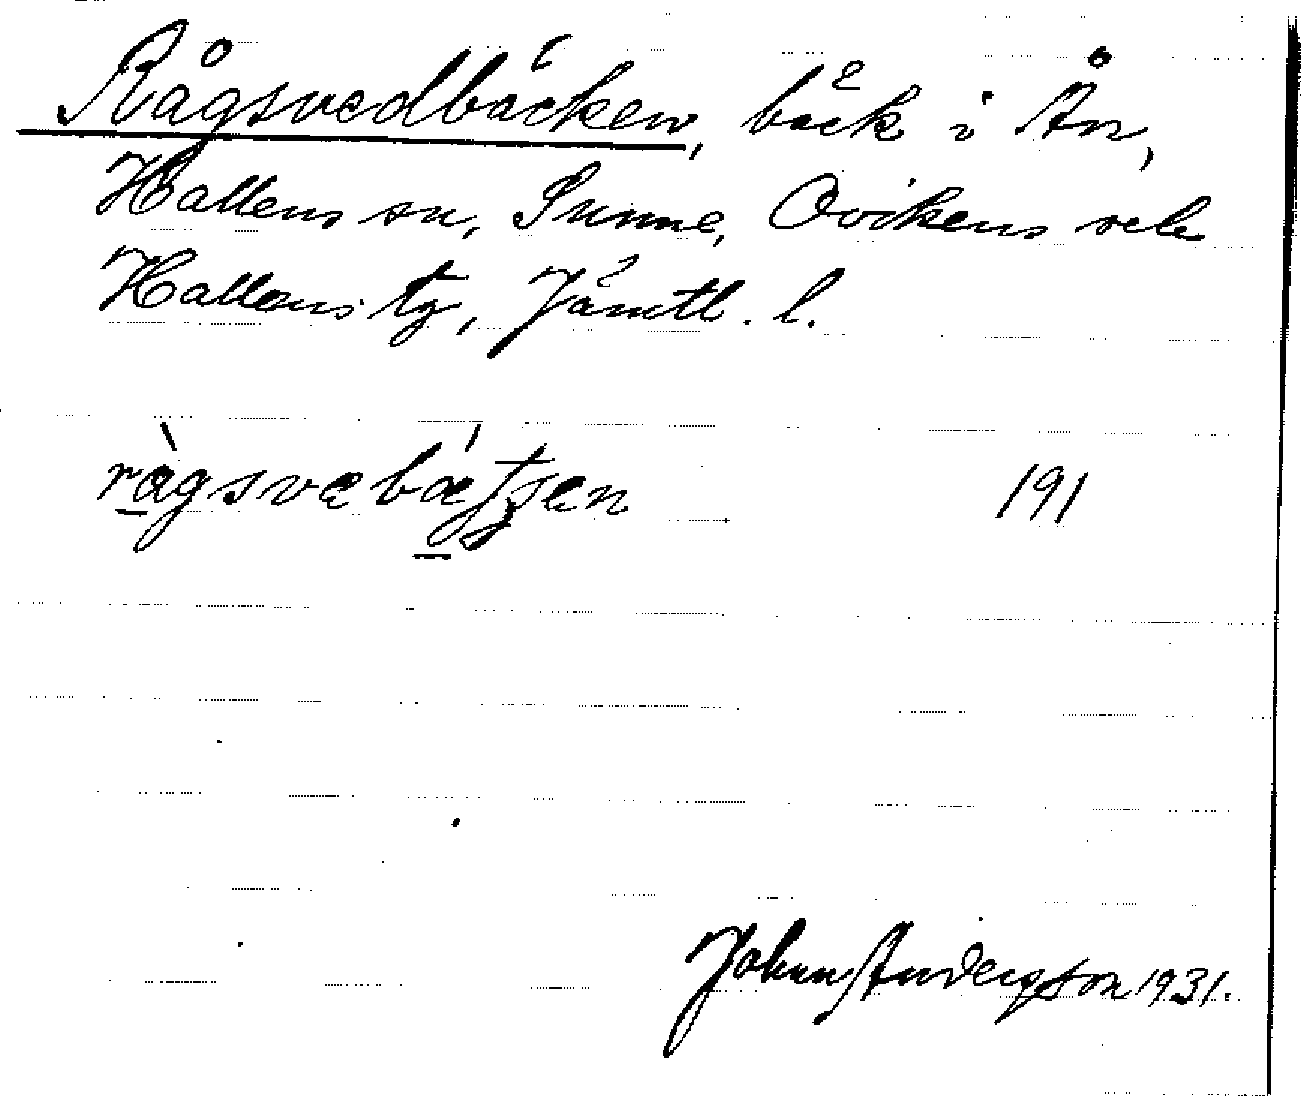 Rågsvedbäcken, bäck i Ån,
Hallens sn, Sunne, Ovikens och
Hallens tg, Jämtl. l.
191
Johan Anderson 1931.